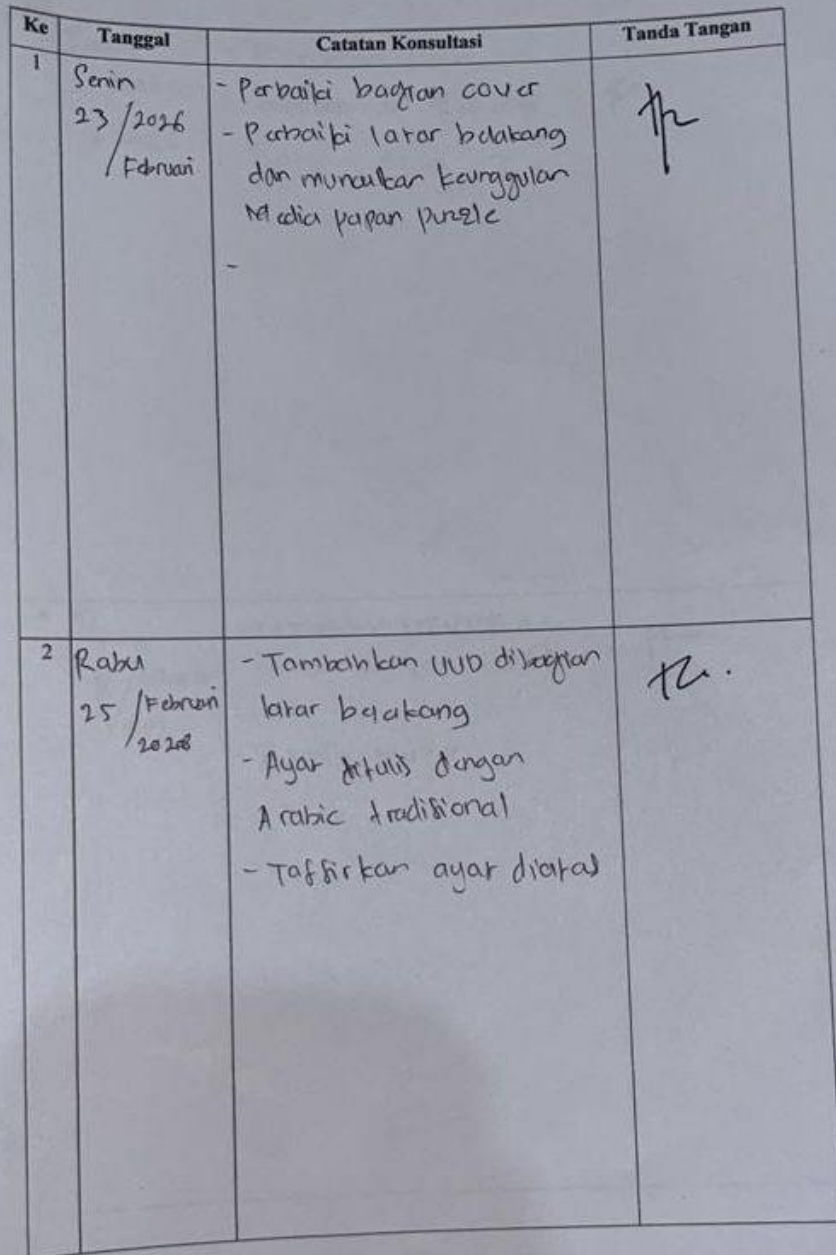 Ke Tanggal Catatan Konsultasi Tanda Tangan
1
Senin
23 / 2026
Februari
- Perbaiki bagian cover
- Perbaiki latar belakang
dan munculkan keunggulan
Media papan puzzle
-
2
Rabu
25 / Februari
- Tambahkan UUD dibagian
latar belakang
- Ayat ditulis dengan
Arabic tradisional
- Taffsirkan ayat diatas